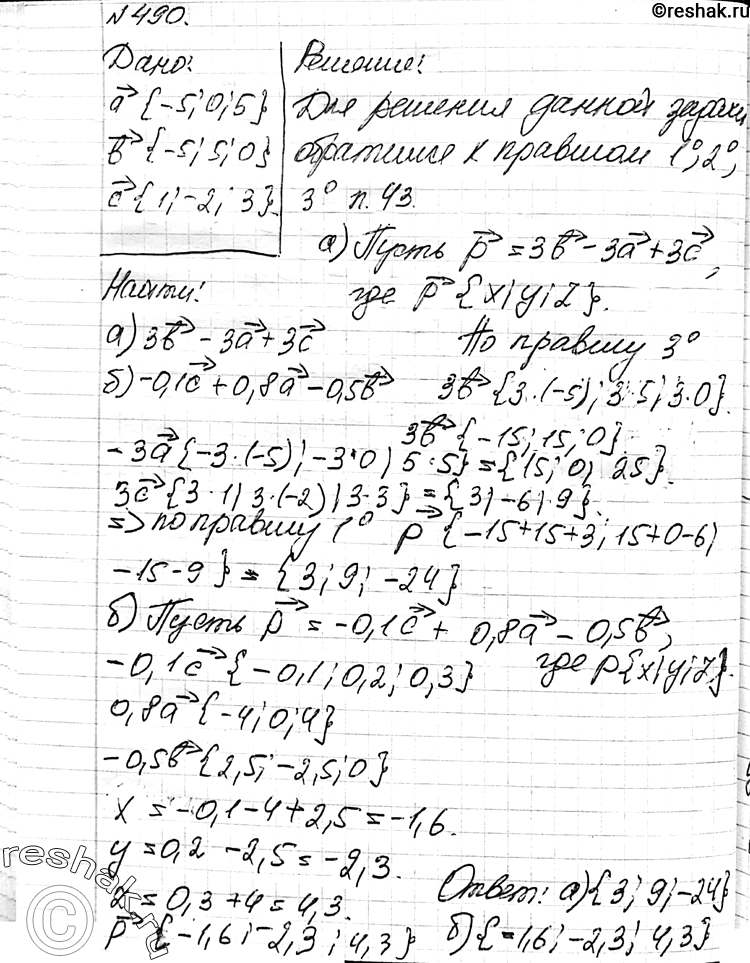 ©reshak.ru
№490.
Дано:
a⃗ {-5; 0; 5}
b⃗ {-5; 5; 0}
c⃗ {1; -2; 3}.
Найти:
а) 3b⃗ - 3a⃗ + 3c⃗
б) -0,1c⃗ + 0,8a⃗ - 0,5b⃗
Решение:
Для решения данной задачи
обратимся к правилам 1°, 2°,
3° п. 43.
а) Пусть p⃗ = 3b⃗ - 3a⃗ + 3c⃗,
где p⃗ {x; y; z}.
По правилу 3°
3b⃗ {3·(-5); 3·5; 3·0}
3b⃗ {-15; 15; 0}
-3a⃗ {-3·(-5); -3·0; 5·5} = {15; 0; 25}.
3c⃗ {3·1; 3·(-2); 3·3} = {3; -6; 9}.
=> по правилу 1° p⃗ {-15+15+3; 15+0-6;
-15-9} = {3; 9; -24}
б) Пусть p⃗ = -0,1c⃗ + 0,8a⃗ - 0,5b⃗,
где p{x; y; z}.
-0,1c⃗ {-0,1; 0,2; 0,3}
0,8a⃗ {-4; 0; 4}
-0,5b⃗ {2,5; -2,5; 0}
x = -0,1-4+2,5 = -1,6.
y = 0,2 -2,5 = -2,3.
z = 0,3+4 = 4,3.
p⃗ {-1,6; -2,3; 4,3}
Ответ: а) {3; 9; -24}
б) {-1,6; -2,3; 4,3}
©reshak.ru